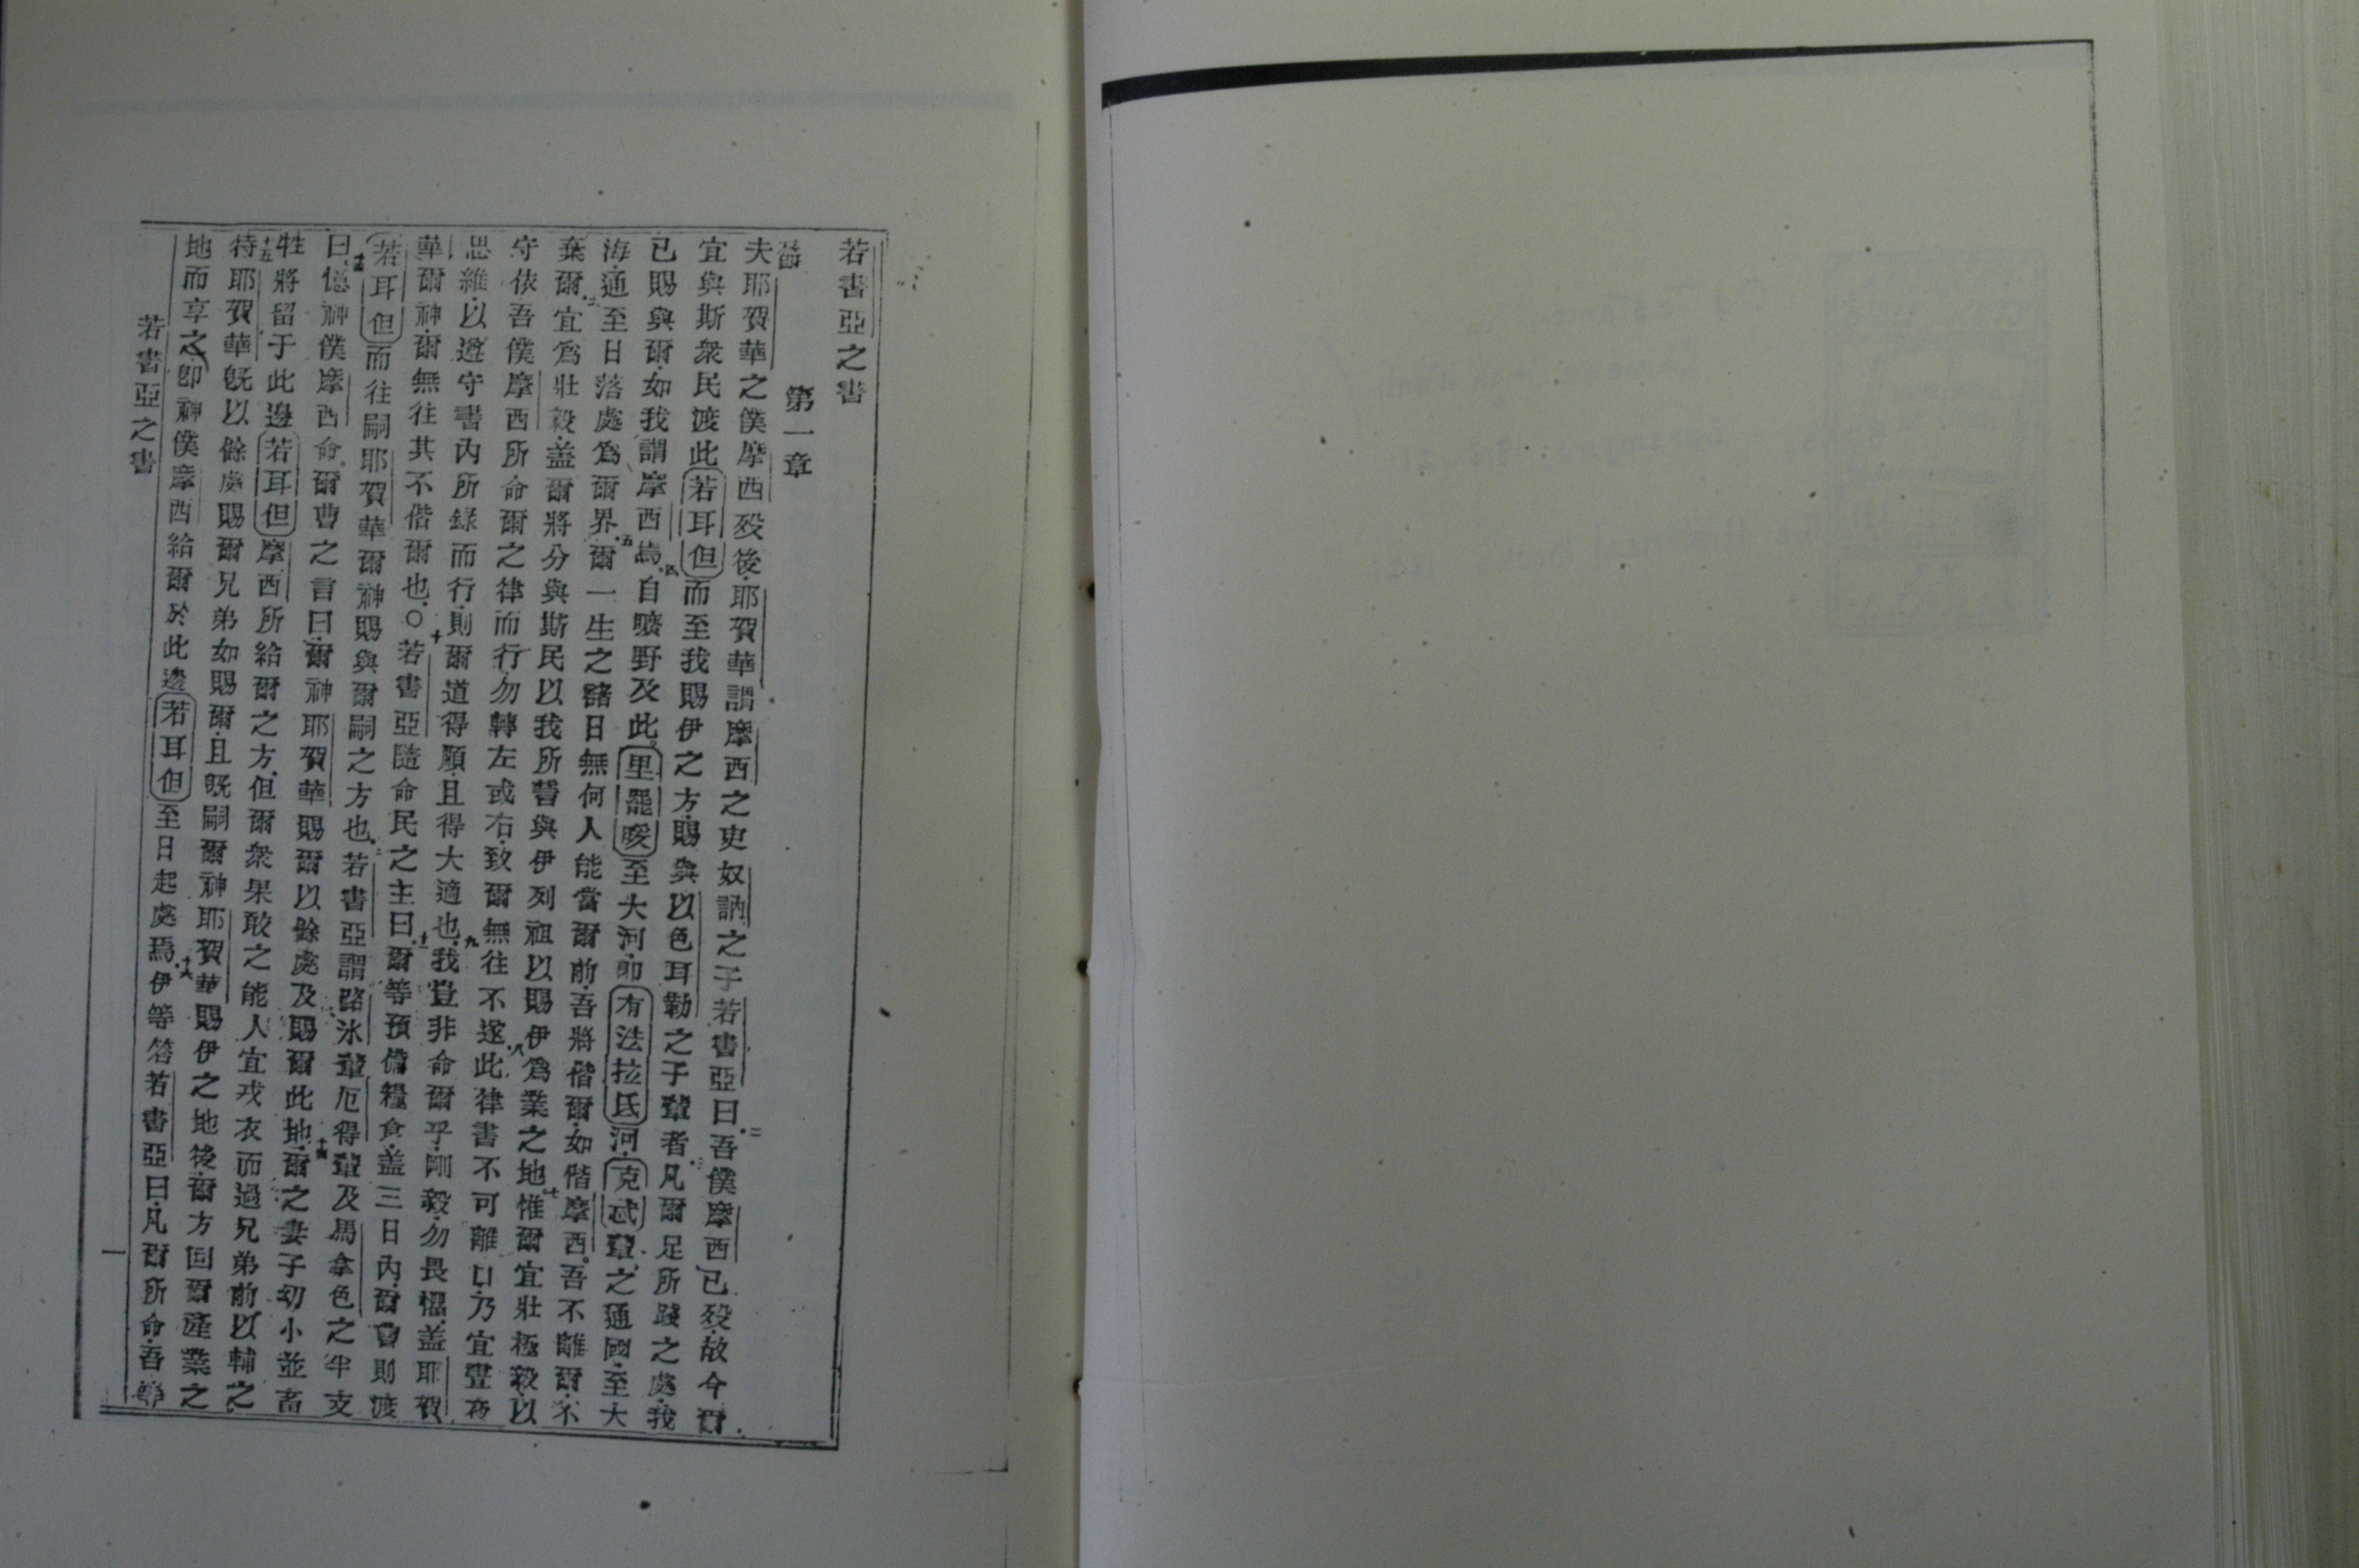 若書亞之書
第一章
節
夫耶賀華之僕摩西歿後·耶賀華謂摩西之吏奴訥之子若書亞曰·二吾僕摩西已歿·故今爾
宜與斯衆民渡此若耳但而至我賜伊之方·賜與以色耳勒之子輩者·三凡爾足所踐之處·我
已賜與爾·如我謂摩西焉·四自曠野及此·里罷㖟至大河·卽有法拉氐河·克忒輩之通國·至大
海·通至日落處爲爾界·五爾一生之諸日無何人能當爾前·吾將偕爾·如偕摩西·吾不離爾·不
棄爾·六宜爲壯毅·盖爾將分與斯民以我所誓與伊列祖以賜伊爲業之地·七惟爾宜壯極毅·以
守依吾僕摩西所命爾之律而行·勿轉左或右·致爾無往不遂·八此律書不可離口·乃宜晝夜
思維·以遵守書內所錄而行·則爾道得順·且得大適也·九我豈非命爾乎·剛毅·勿畏慍·盖耶賀
華爾神·爾無往其不偕爾也·○十若書亞隨命民之主曰·十一爾等預備糧食·盖三日內·爾曹則渡
若耳但而往嗣耶賀華爾神賜與爾嗣之方也·十二若書亞謂路氷輩厄得輩及馬拿色之半支
曰·十三憶神僕摩西命爾曹之言曰·爾神耶賀華賜爾以餘處及賜爾此地·十四爾之妻子幼小並畜
牲將留于此邊若耳但摩西所給爾之方·但爾衆果敢之能人宜戎衣而過兄弟前·以輔之·
十五待耶賀華旣以餘處賜爾兄弟如賜爾·且旣嗣爾神耶賀華賜伊之地後·爾方回爾產業之
地而享之·卽神僕摩西給爾於此邊若耳但至日起處焉·十六伊等答若書亞曰·凡爾所命·吾等
若書亞之書
一